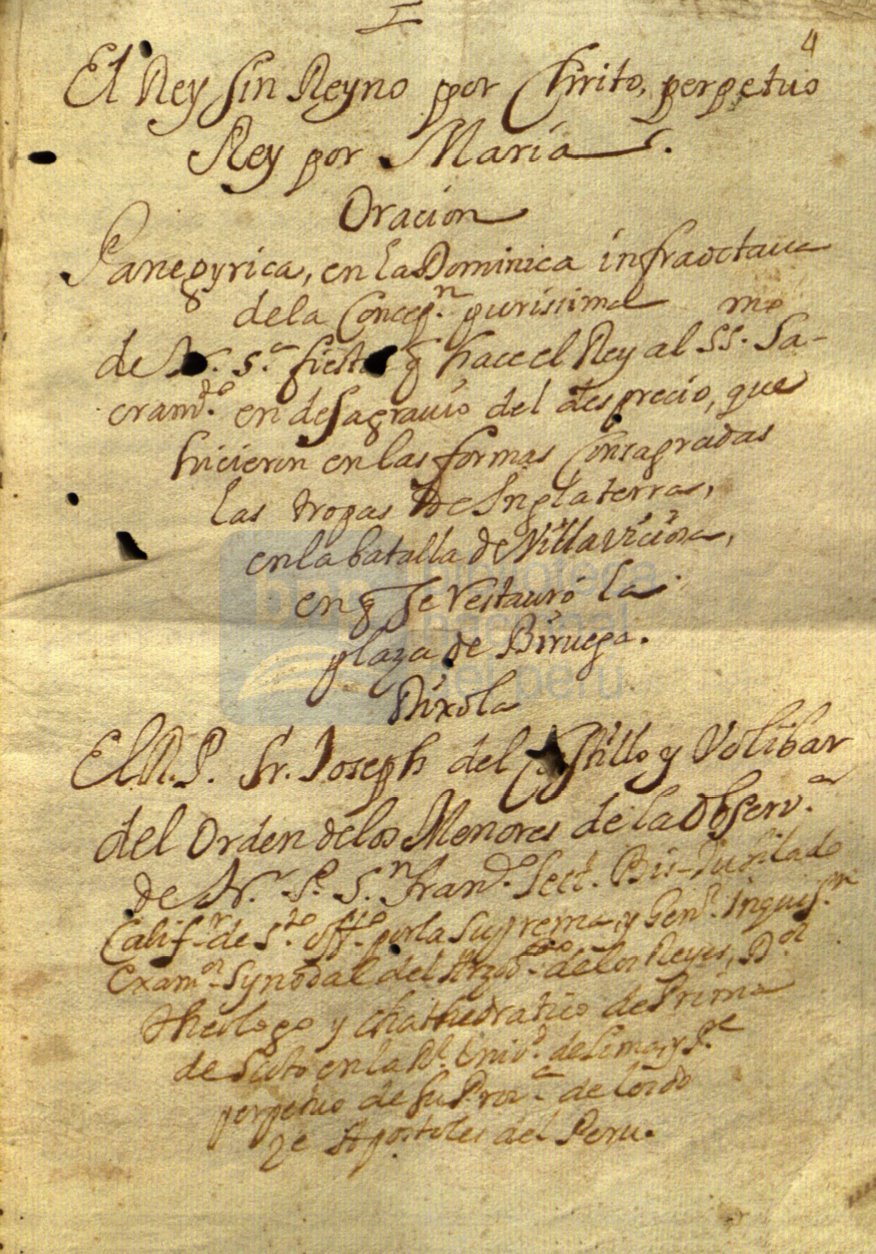 I
4
El Rey sin Reyno por Chrito, perpetuo
Rey por María.
Oracion
Panegyrica, en la Dominica infraoctava
dela Concep.n purissima
de N. S.a fiesta q hace el Rey al SS.mo Sa-
cram.to en desagravio del desprecio, que
hicieron en las formas Consagradas
las tropas de Inglaterra,
en la batalla de Villaviciosa,
en q se restauró la
plaza de Biruega.
Dixola
El R. P. Fr. Joseph del Castillo y Volibar
del Orden delos Menores de la Observ.a
de N. P. S.n Fran.co Lect. Bis-Jubilado
Calif.r de S.to Off.o por la Suprema, y Gen.l Inquis.n
Exam.or Synodal del Arzob.do de los Reyes, D.or
Theologo y Chathedratico de Prima
de Scoto en la R.l Univ.d de Lima, y P.e
perpetuo de su Prov.a de los do
ze Apostoles del Peru.
bnp biblioteca
nacional
del perú